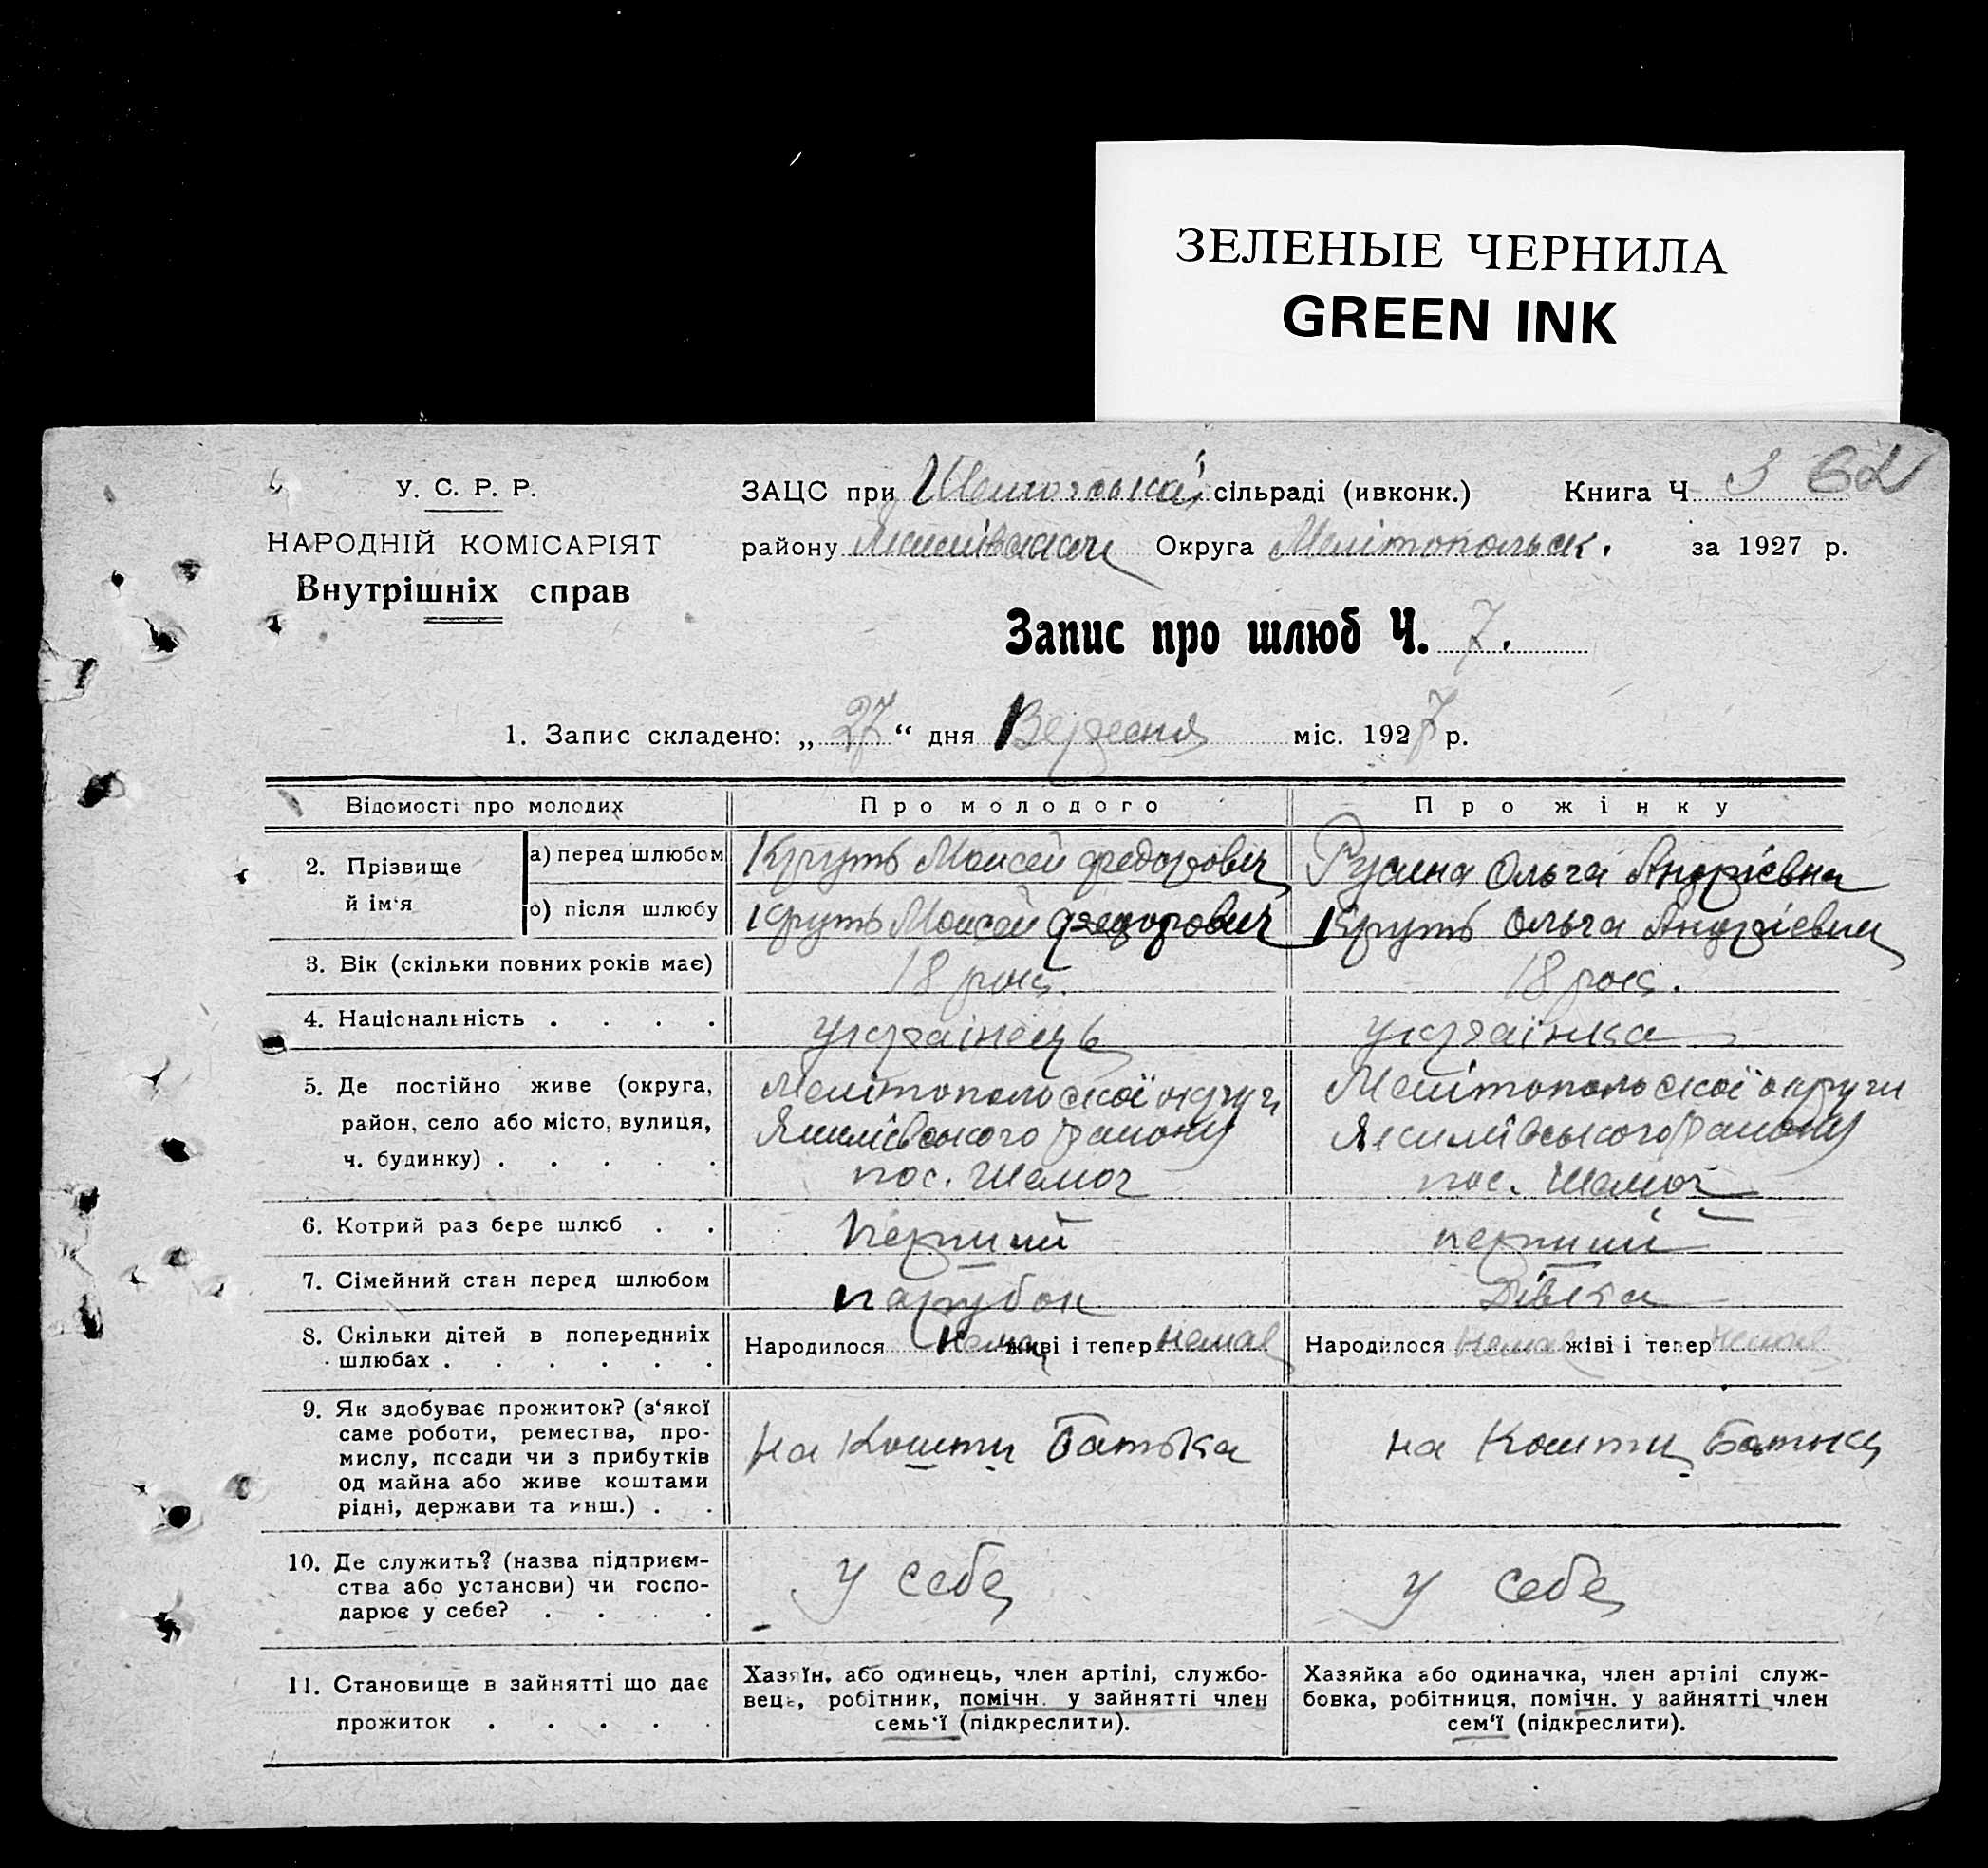 ЗЕЛЕНЫЕ ЧЕРНИЛА
GREEN INK
У. С. Р. Р.
НАРОДНІЙ КОМІСАРІЯТ
Внутрішніх справ
ЗАЦС при сільраді (ивконк.) Книга Ч. 3 62
району Округа Мелітопольськ. за 1927 р.
Запис про шлюб Ч. 7.
1. Запис складено: „ 27 “ дня Вересня міс. 1927 р.
Відомості про молодих Про молодого Про жінку
2. Прізвище й ім‘я
а) перед шлюбом Круть Моисей Федорович Русина Ольга Андрієвна
б) після шлюбу Круть Моисей Федорович Круть Ольга Андрієвна
3. Вік (скільки повних років має) 18 рокі. 18 рокі.
4. Національність . . . . українець українка
5. Де постійно живе (округа, Мелітопольської округи Мелітопольської округи
район, село або місто, вулиця, Якимівського району Якимівського району
ч. будинку) . . . . . пос. Шемот пос. Шемот
6. Котрий раз бере шлюб . . перший перший
7. Сімейний стан перед шлюбом парубок Дівка
8. Скільки дітей в попередниіх Народилося Нема живі і тепер немає Народилося Немає жіві і тепер немає
шлюбах . . . . . .
9. Як здобуває прожиток? (з‘якої
саме роботи, ремества, про-
мислу, посади чи з прибутків на Кошти Батька на Кошти Батька
од майна або живе коштами
рідні, держави та инш.) . .
10. Де служить? (назва підприєм-
ства або установи) чи госпо- у себе у себе
дарює у себе? . . . .
11. Становище в зайнятті що дає
прожиток . . . . .
Хазяїн, або одинець, член артілі, службо-
вець, робітник, помічн. у зайнятті член
семь‘ї (підкреслити).
Хазяйка або одиначка, член артілі служ-
бовка, робітниця, помічн. у зайнятті член
сем‘ї (підкреслити).